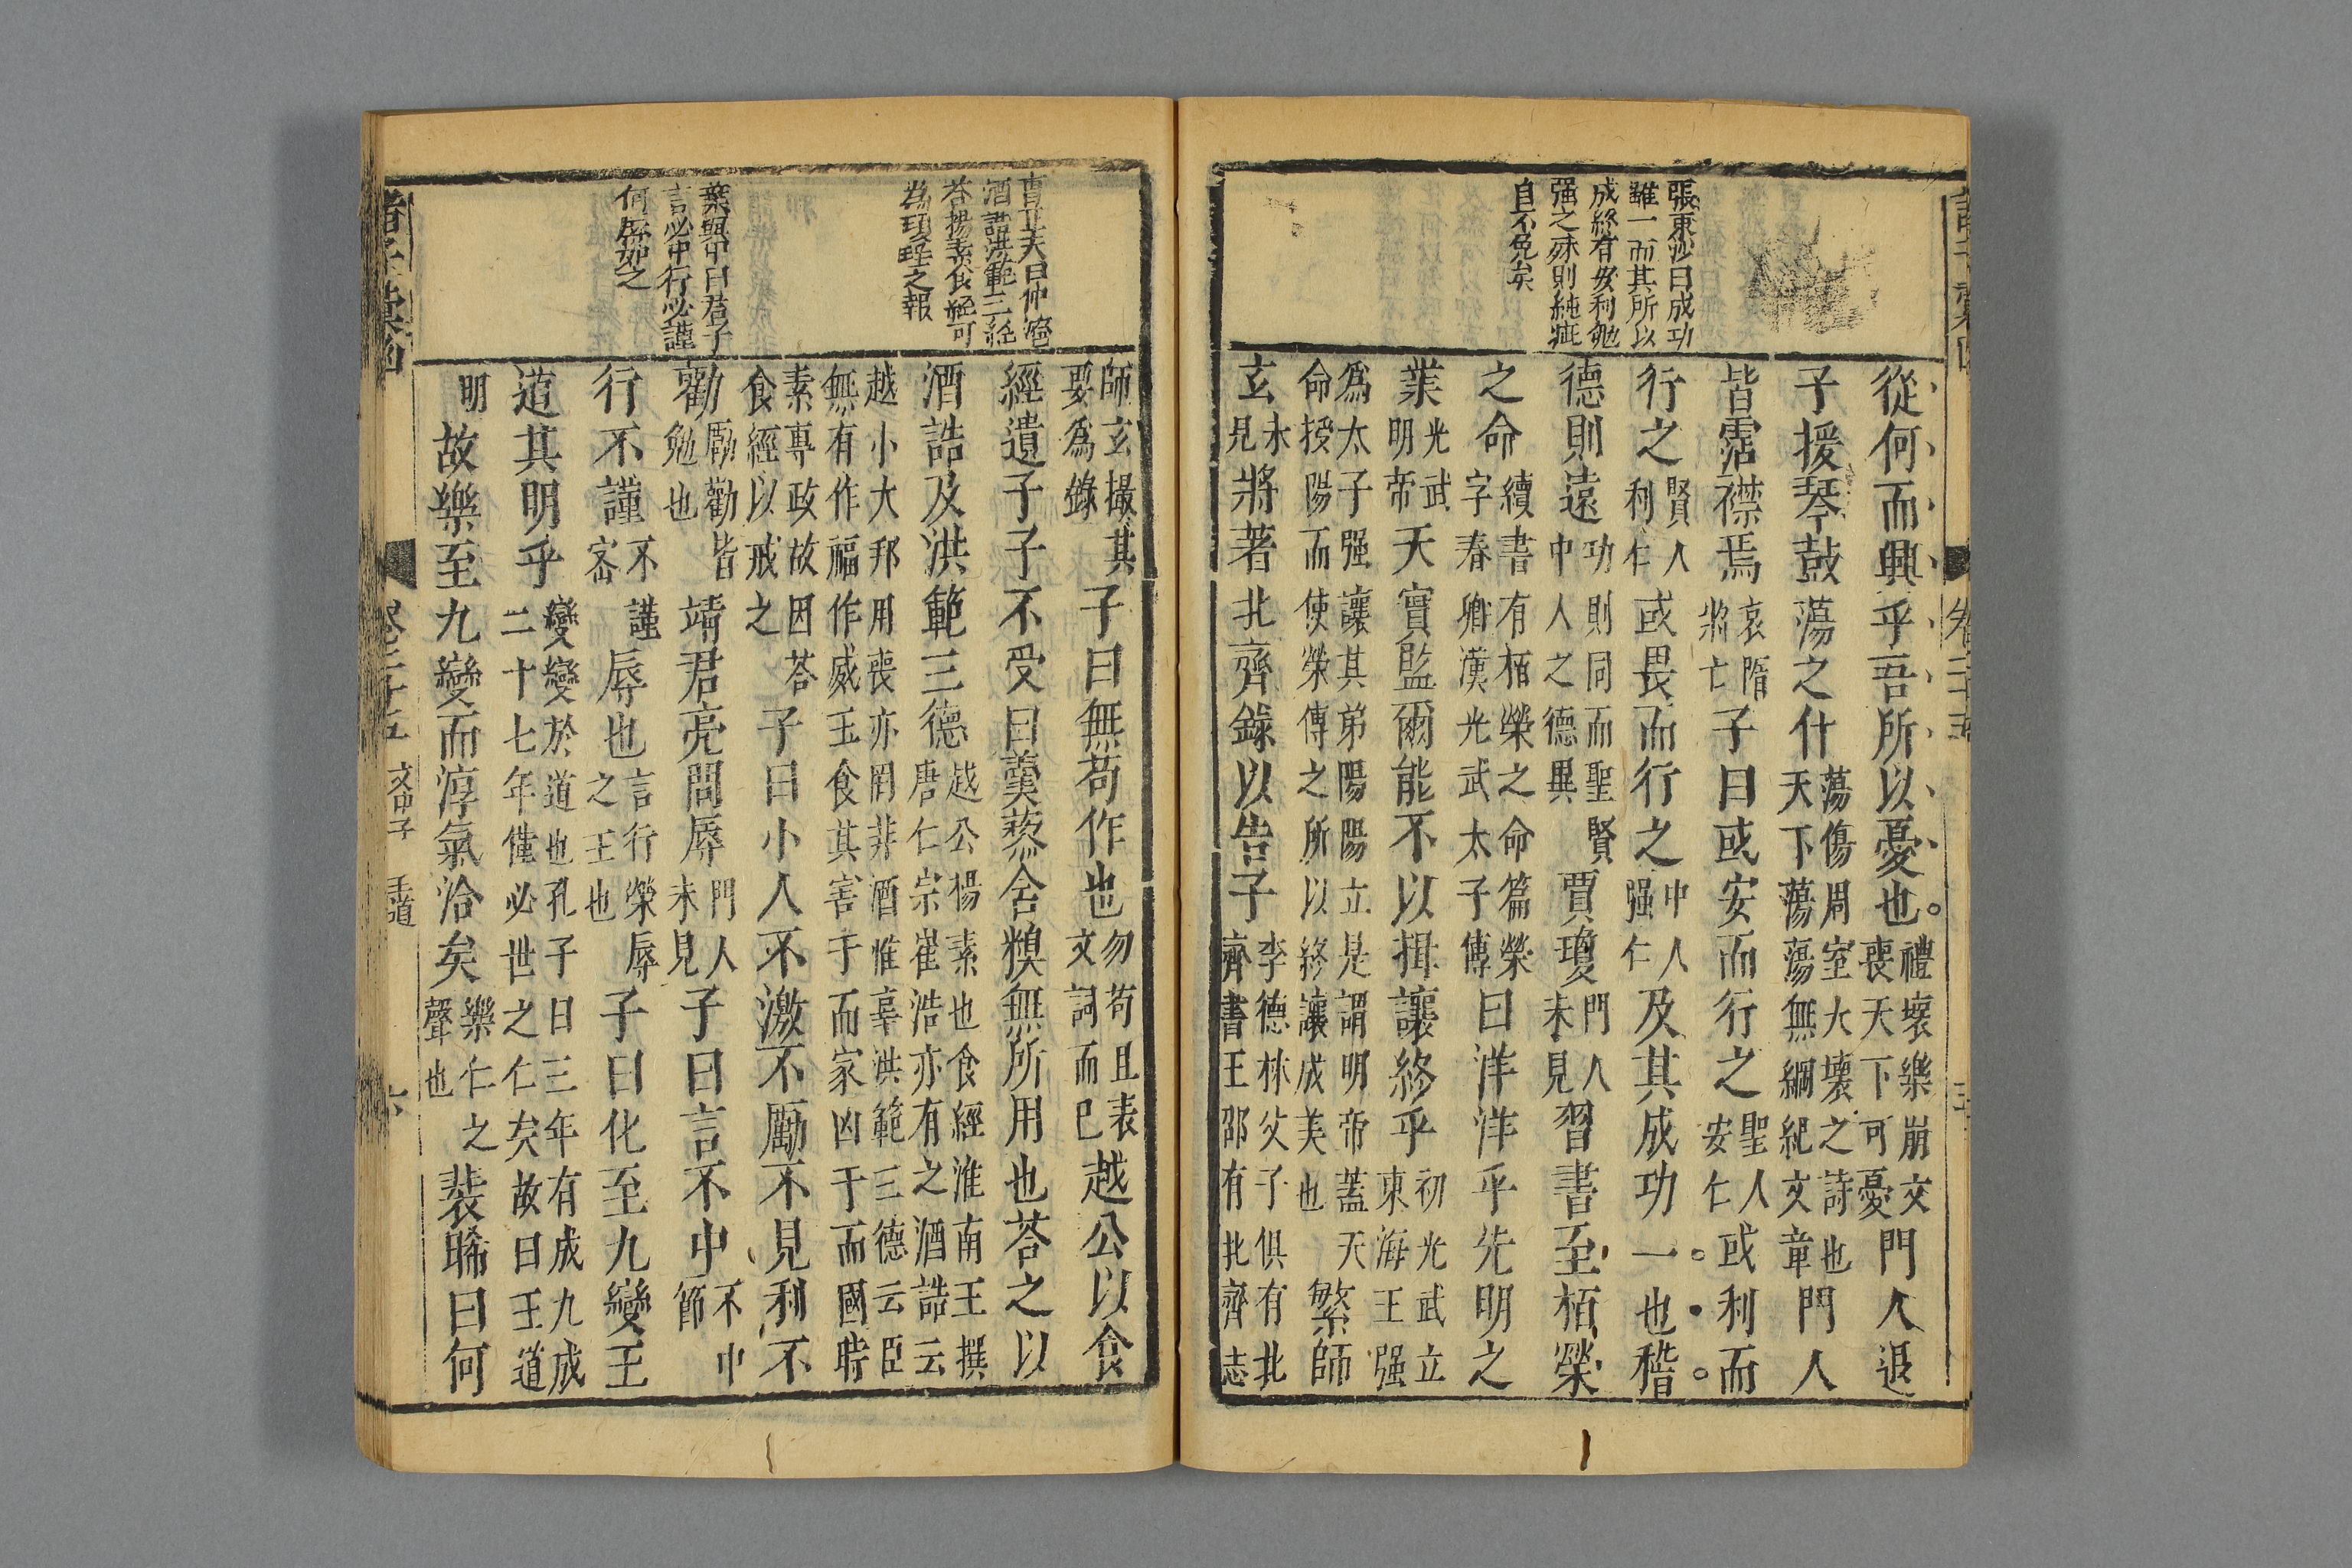 張東沙曰成功
雖一而其所以
成終有安利勉
强之殊則純疵
自不免矣
從何而興乎吾所以憂也禮壞樂崩文喪天下可憂門人退
子援琴鼓蕩之什蕩傷周室大壞之詩也天下蕩蕩無綱紀文章門人
皆霑襟焉哀隋將亡子曰或安而行之聖人安仁或利而
行之賢人利仁或畏而行之中人强仁及其成功一也稽
德則遠功則同而聖賢中人之德異賈瓊門人未見習書至栢榮
之命續書有栢榮之命篇榮字春卿漢光武太子傅曰洋洋乎先明之
業光武明帝天實監爾能不以揖讓終乎初光武立東海王强
爲太子强讓其弟陽陽立是謂明帝蓋天命授陽而使榮傅之所以終讓成美也繁師
玄未見將著北齊錄以告子李德林父子俱有北齊書王邵有北齊志
曰仲淹
酒誥洪範三經
荅楊素食經可
為瓊瑤之報
葉與中曰君子
言必中行必謹
何辱如之
師玄撮其要爲錄子曰無苟作也勿苟且表文詞而已越公以食
經遺子子不受曰羹蒸含糗無所用也荅之以
酒誥及洪範三德越公楊素也食經淮南王撰唐仁宗崔浩亦有之酒誥云
越小大邦用喪亦罔非酒惟辜洪範三德云臣無有作福作威玉食其害于而家凶于而國時
素專政故因荅食經以戒之子曰小人不激不勵不見利不
勸勵勸皆勉也靖君亮問辱門人未見子曰言不中不中節
行不謹不謹密辱也言行榮辱之王也子曰化至九變王
道其明乎變變於道也孔子曰三年有成九成二十七年僅必世之仁矣故曰王道
明故樂至九變而淳氣洽矣樂仁之聲也裴晞曰何
卷二十五
文中子
王道